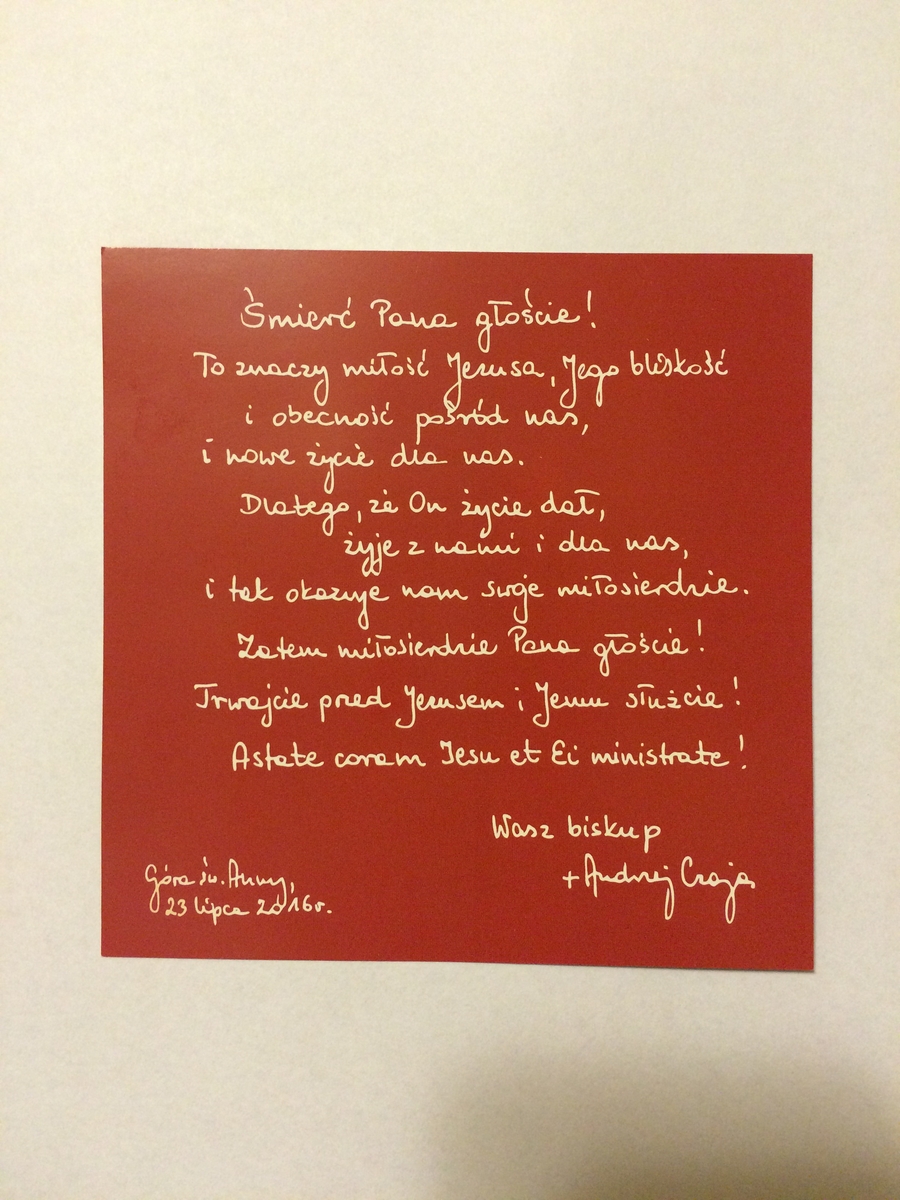 Śmierć Pana głoście!
To znaczy miłość Jezusa, Jego bliskość
i obecność pośród nas,
i nowe życie dla nas.
Dlatego, że On życie dał,
żyje z nami i dla nas,
i tak okazuje nam swoje miłosierdzie.
Zatem miłosierdzie Pana głoście!
Trwajcie przed Jezusem i Jemu służcie!
Astate coram Iesu et Ei ministrate!
Wasz biskup
+ Andrzej Czaja
Góra św. Anny,
23 lipca 2016 r.